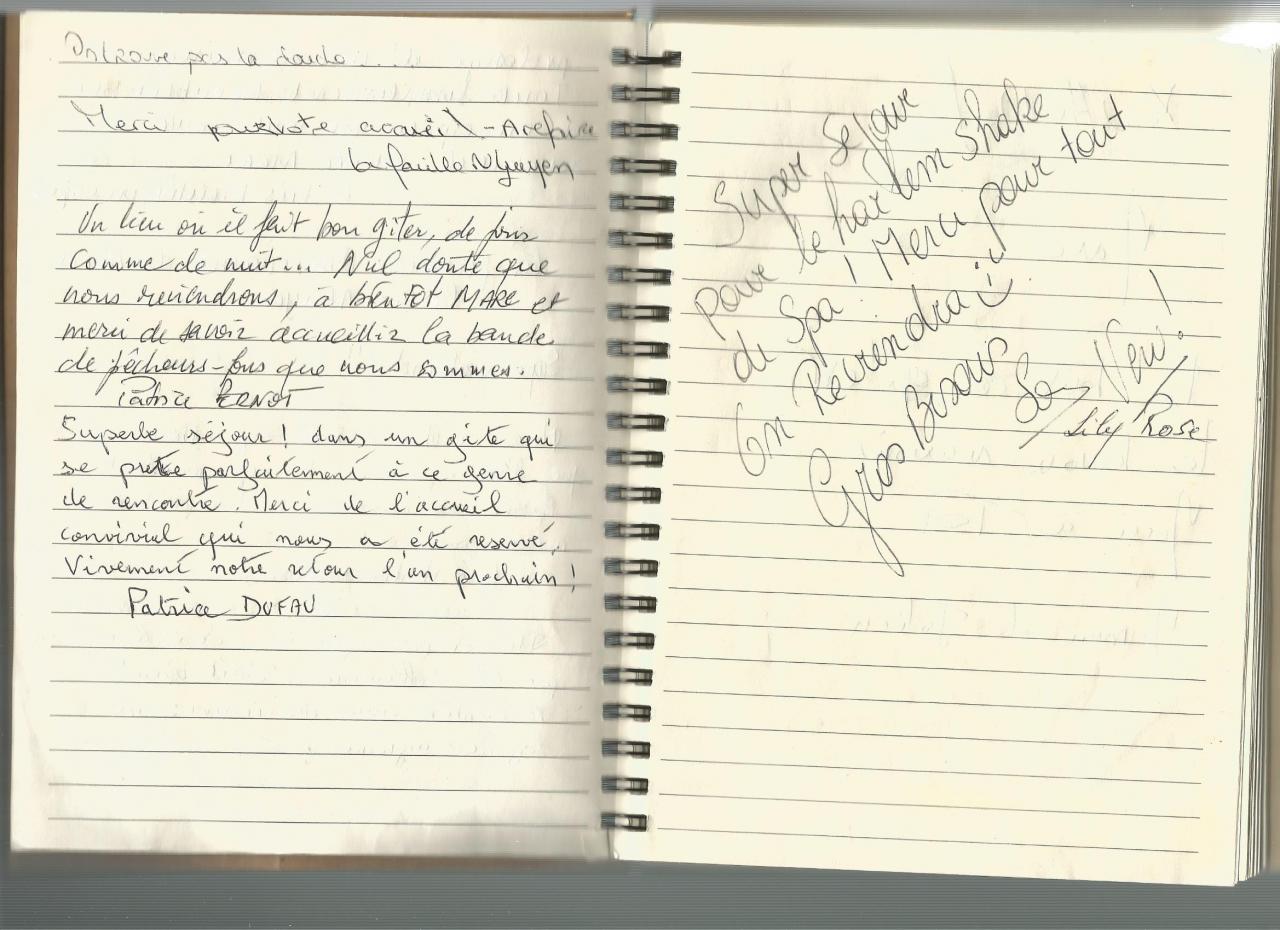 On trouve pas la douche ...
Merci pour votre accueil - A refaire
la famille Nguyen
Un lieu où il fait bon gîter, de jour
comme de nuit... Nul doute que
nous reviendrons, à bientôt MARC et
merci de savoir accueillir la bande
de pêcheurs-fous que nous sommes.
Patrice
Superbe séjour! dans un gîte qui
se prete parfaitement à ce genre
de rencontre. Merci de l'accueil
convivial qui nous a été reservé.
Vivement notre retour l'an prochain!
Patrice DUFAU
Super Sejour
pour le harlem shake
de Spa! Merci pour tout
On Reviendra :)
Gros Bisous
Lily Rose